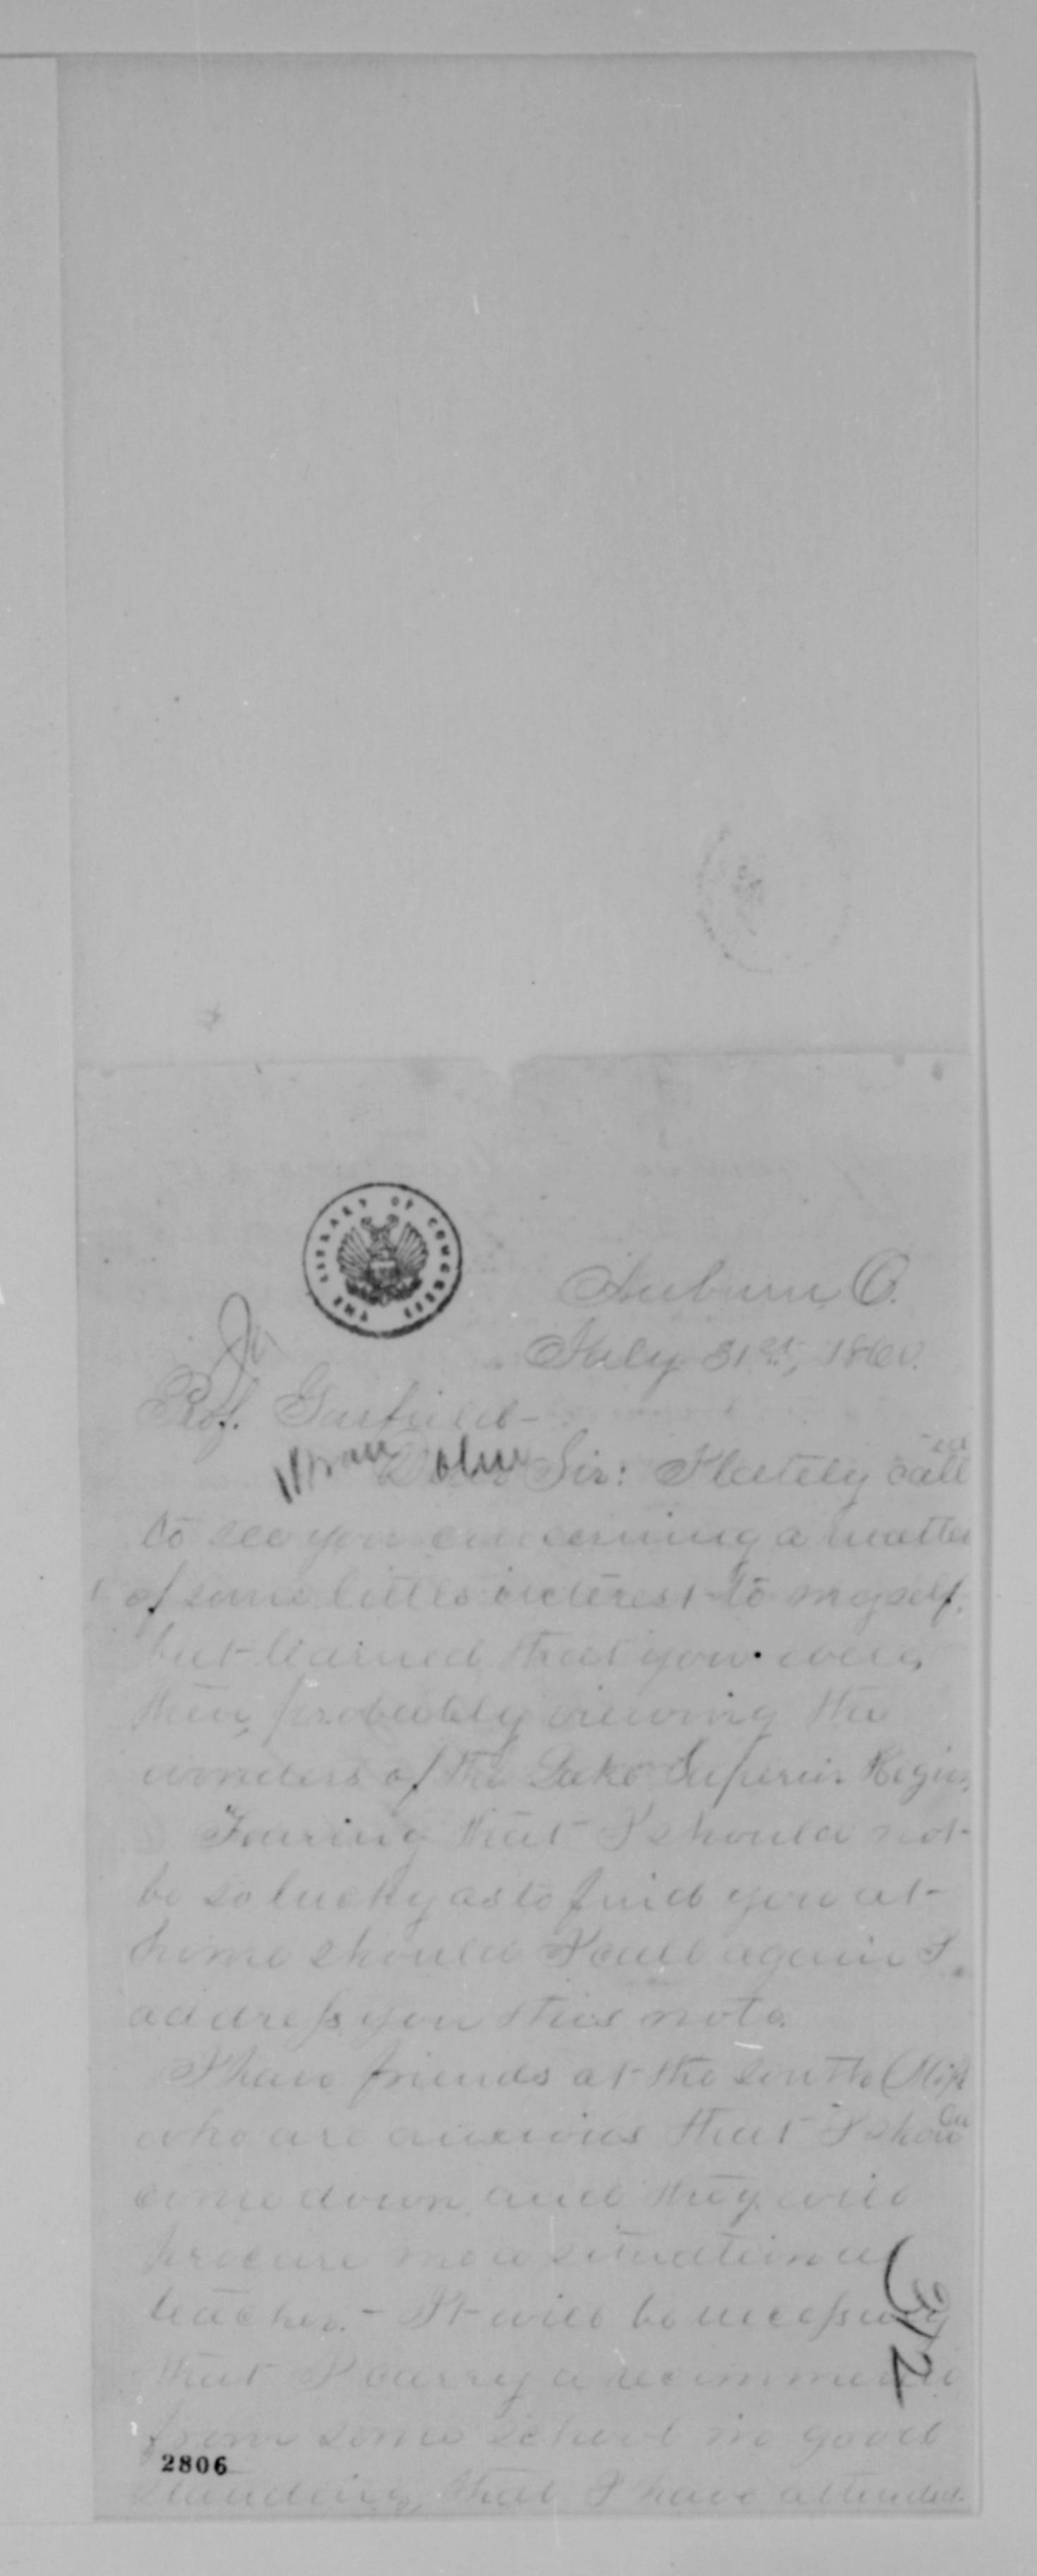 THE LIBRARY OF CONGRESS
Auburn, O.
July 31st, 1860.
Prof. Garfield-
Dear Sir: I lately called
to see you concerning a matter
of some little interest to myself.
but learned that you were,
then, probably viewing the
wonders of the Lake Superior Region.
Fearing that I should not
be so lucky as to find you at
home should I call again I
address you this note.
I have friends at the South (Miss
who are anxious that I should
come down and they will
procure me a situation as
teacher. - It will be necessary
that I carry a recommend
from some school in good
standing, that I have attended.
312
2806